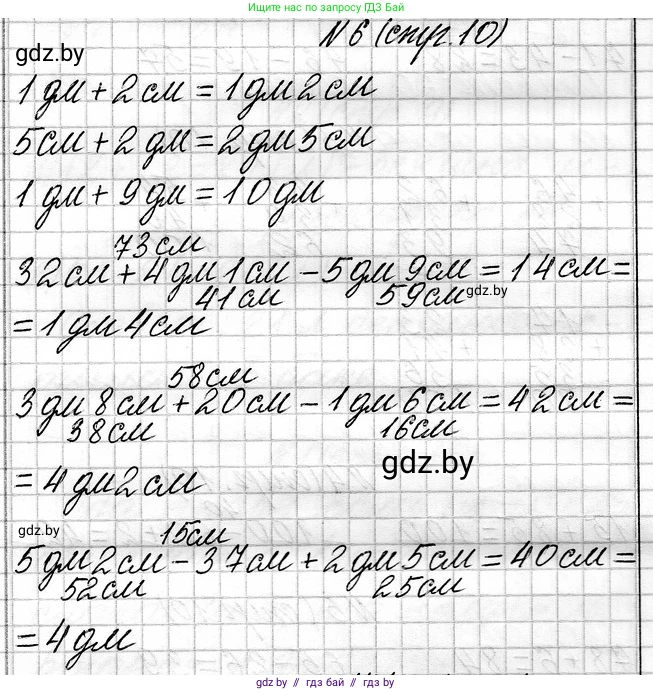 Ищите нас по запросу ГДЗ Бай
N 6 (стр. 10)
gdz.by
1 дм + 2 см = 1 дм 2 см
5 см + 2 дм = 2 дм 5 см
1 дм + 9 дм = 10 дм
73 см
32 см + 4 дм 1 см - 5 дм 9 см = 14 см =
41 см 59 см gdz.by
= 1 дм 4 см
58 см
3 дм 8 см + 20 см - 1 дм 6 см = 42 см =
38 см 16 см
gdz.by
= 4 дм 2 см
gdz.by
15 см
5 дм 2 см - 37 см + 2 дм 5 см = 40 см =
52 см 25 см
= 4 дм
gdz.by // gdz.by // gdz.by